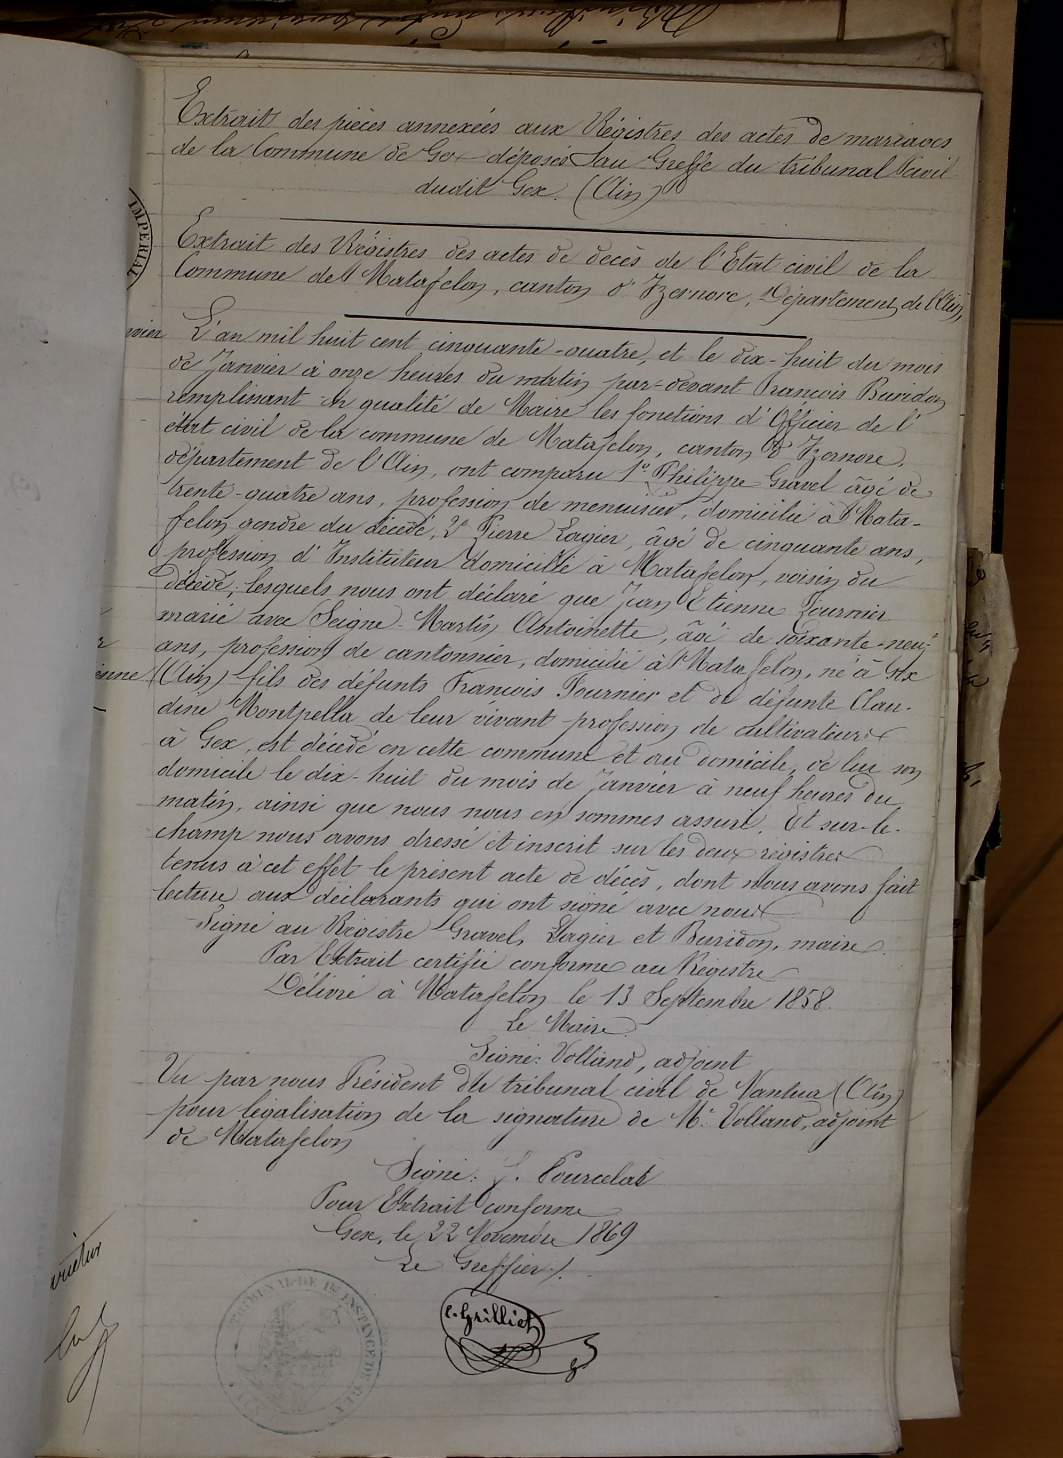 Extrait des pièces annexées aux Régistres des actes de mariages
de la Commune de Gex déposés au Greffe du tribunal Civil
dudit Gex. (Ain)
IMPERIAL
Extrait des Régistres des actes de décès de l'Etat civil de la
Commune de Matafelon, canton d'Izernore, Département de l'Ain,
L'an mil huit cent cinquante-quatre, et le dix-huit du mois
de Janvier à onze heures du matin par-devant François Buridon
remplissant en qualité de Maire les fonctions d'Officier de l'
état civil de la commune de Matafelon, canton d'Izernore,
département de l'Ain, ont comparu 1° Philippe Gravel âgé de
trente-quatre ans, profession de menuisier, domicilié à Mata-
felon gendre du décédé, 2° Pierre Lagier, âgé de cinquante ans,
profession d'Instituteur domicilié à Matafelon, voisin du
décédé; lesquels nous ont déclaré que Jean Etienne Fournier
marié avec Seigne-Martin Antoinette, âgé de soixante-neuf
ans, profession de cantonnier, domicilié à Matafelon, né à Gex
(Ain) fils des défunts François Fournier et de défunte Clau-
dine Montpella de leur vivant profession de cultivateurs
à Gex, est décédé en cette commune et au domicile de lui son
domicile le dix-huit du mois de Janvier à neuf heures du
matin, ainsi que nous nous en sommes assuré. Et sur-le-
champ nous avons dressé et inscrit sur les deux régistres
tenus à cet effet le présent acte de décès, dont nous avons fait
lecture aux déclarants qui ont signé avec nous
Signé au Régistre Gravel, Lagier et Buridon, maire.
Par Extrait certifié conforme au Régistre
Délivré à Matafelon le 13 Septembre 1858.
Le Maire
Signé: Volland, adjoint
Vu par nous Président du tribunal civil de Nantua (Ain)
pour légalisation de la signature de Mr. Volland, adjoint
de Matafelon
Signé: J. Pourcelot
Pour Extrait conforme
Gex, le 22 Novembre 1869
Le Greffier
C. Grilliet
TRIBUNAL DE 1re INSTANCE DE GEX